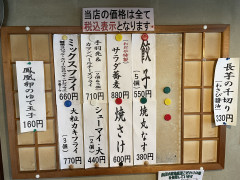 当店の価格は全て
税込表示となります。
長芋の千切り
（わさび醤油）
330円
餃子
（5個）
550円
焼きなす
380円
サラダ蕎麦
880円
焼さけ
600円
710円
シューマイ
440円
ミックスフライ
660円
大粒カキフライ
（5個）
770円
鳳凰卵のゆで玉子
160円